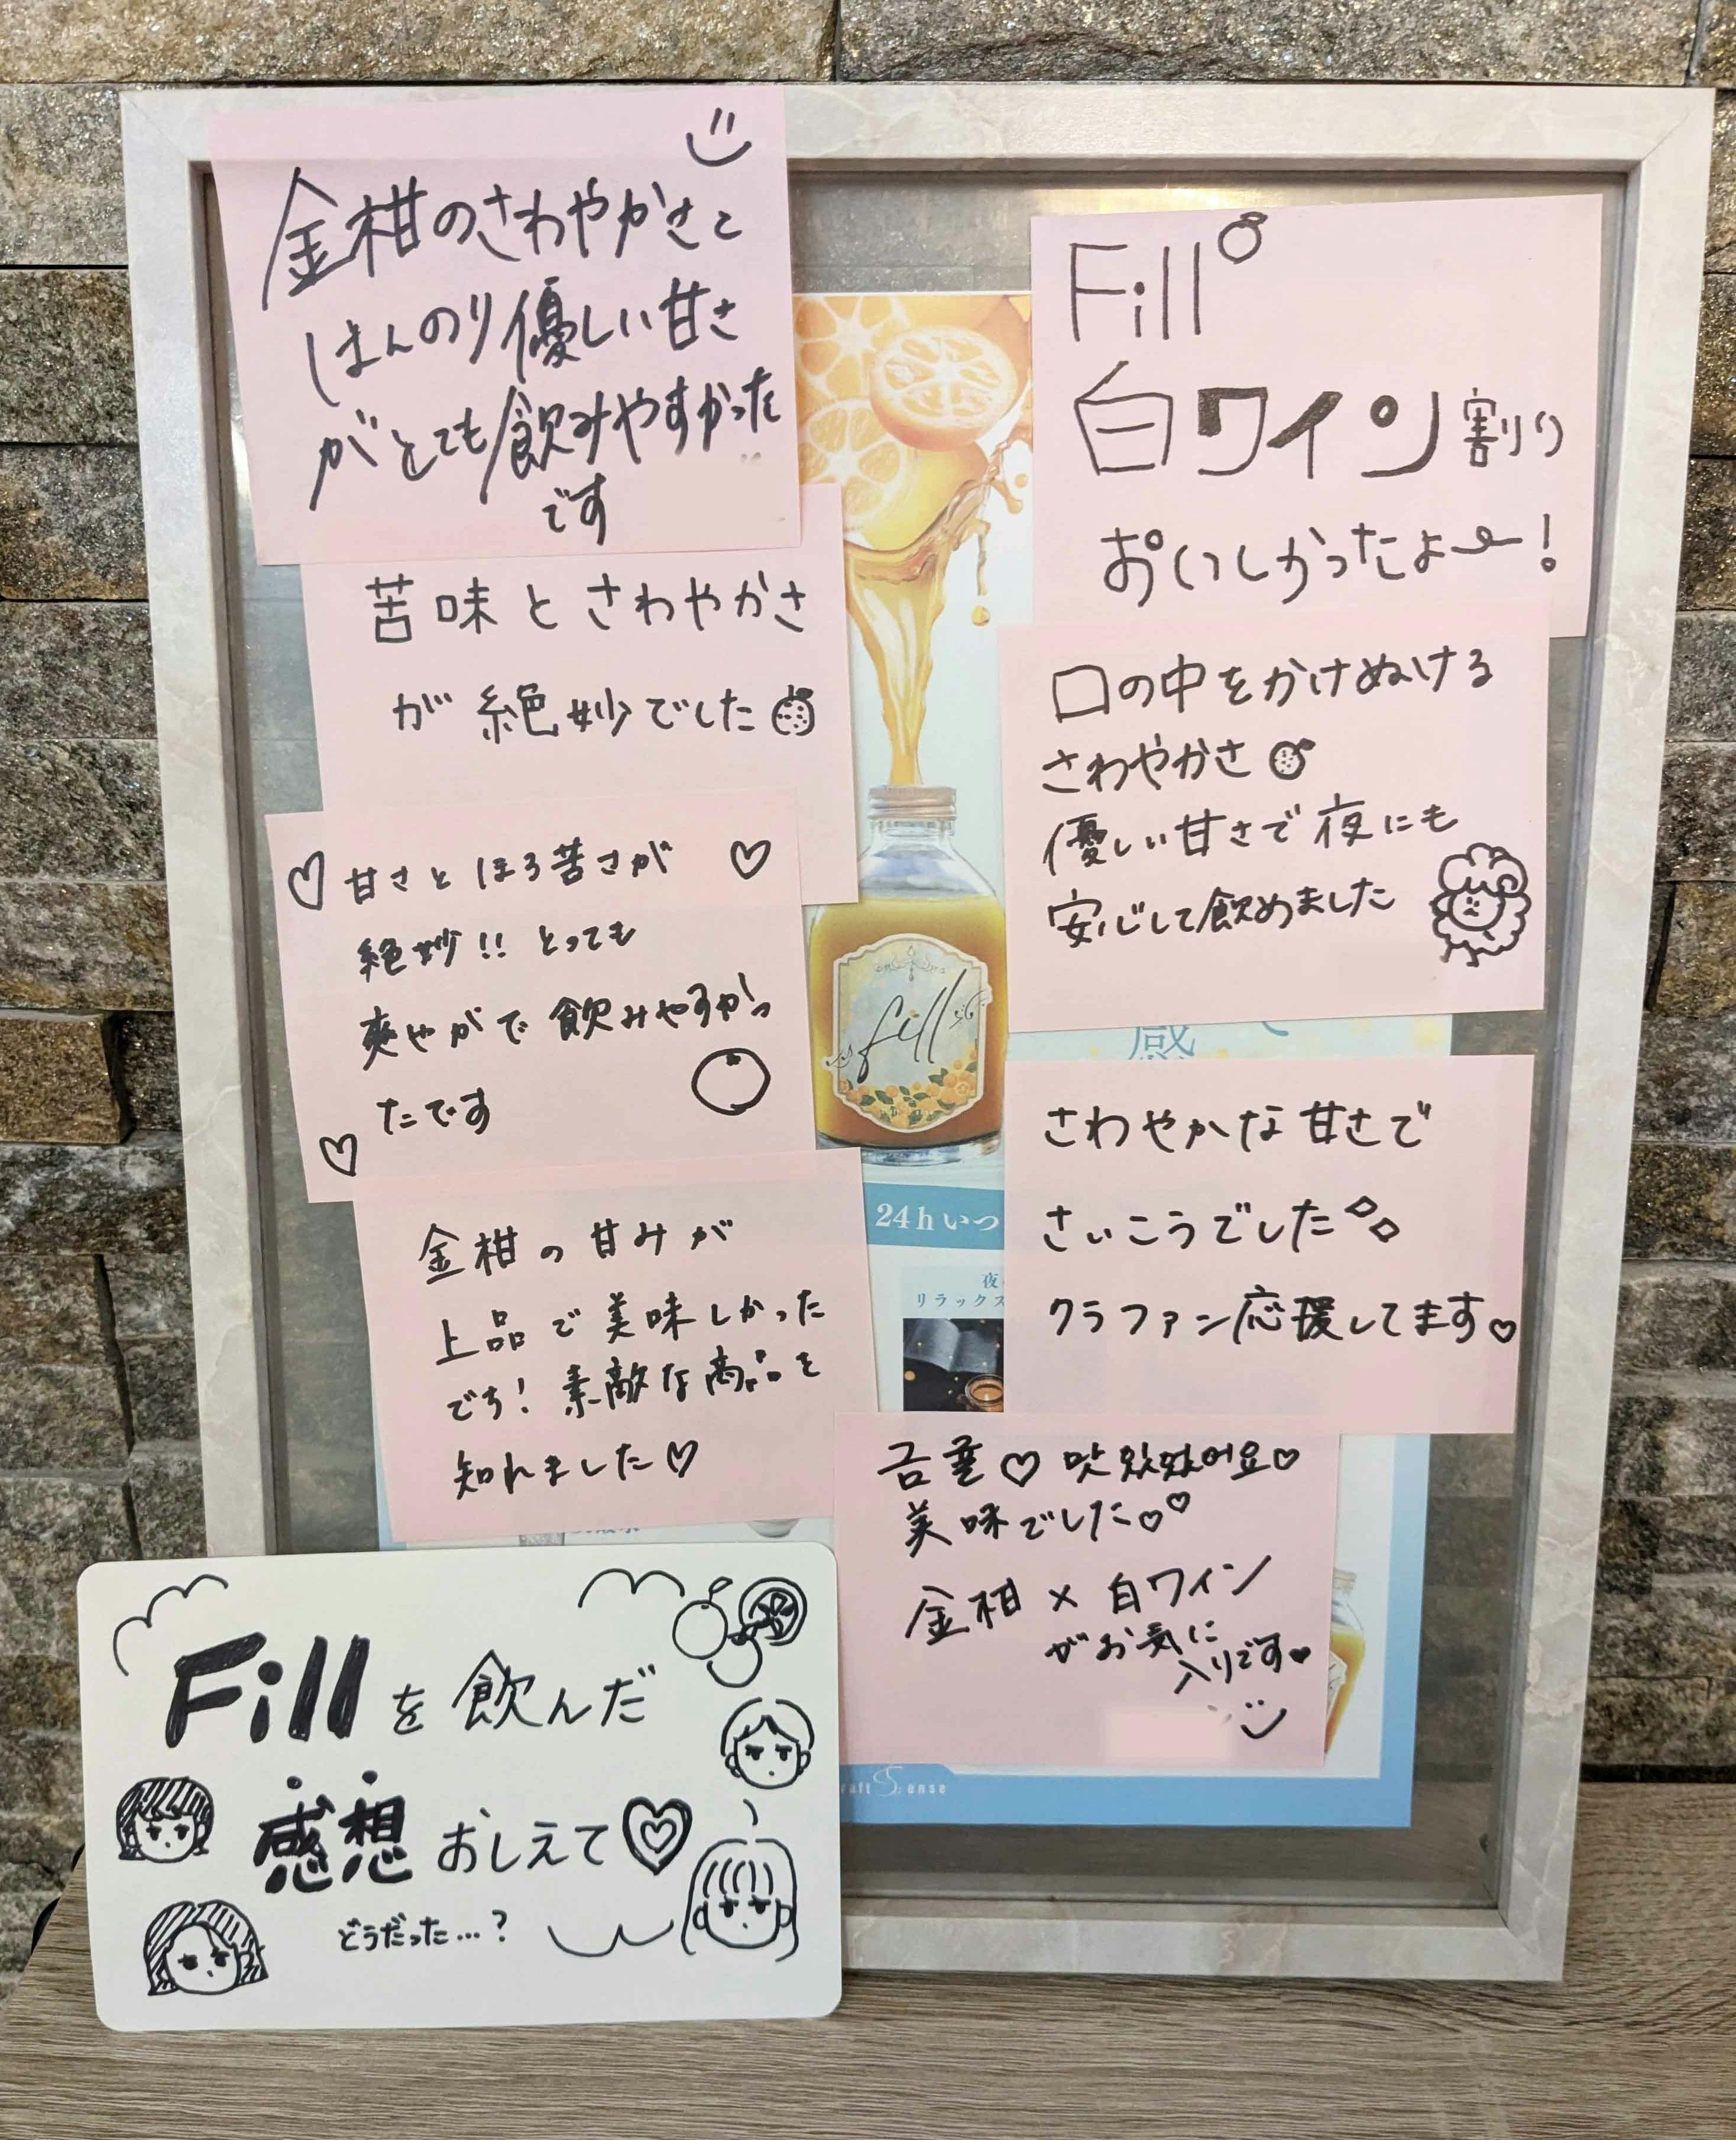 金柑のさわやかさと
ほんのり優しい甘さ
がとても飲みやすかった
です
苦味とさわやかさ
が絶妙でした
甘さとほろ苦さが
絶妙!! とっても
爽やかで飲みやすかっ
たです
金柑の甘みが
上品で美味しかった
です! 素敵な商品を
知れました♡
Fill
白ワイン割り
おいしかったよー!
口の中をかけぬける
さわやかさ
優しい甘さで夜にも
安心して飲めました
さわやかな甘さで
さいこうでした
クラファン応援してます♡
금귤♡ 맛있었어요♡
美味でした♡♡
金柑×白ワイン
がお気に
入りです♥
fill
感
24hいつ
夜
リラックス
Fillを飲んだ
感想おしえて♡
どうだった…?